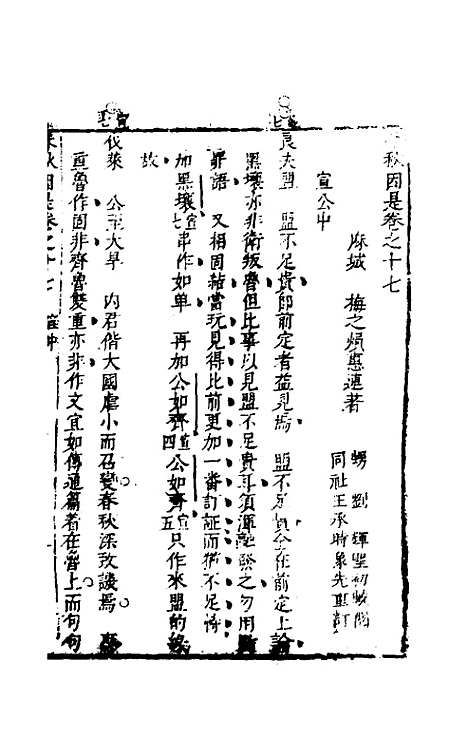 春秋因是卷之十七
麻城 梅之熉惠連著
甥 劉 輝聖初
同社王承時象先重訂
宣公中
宣七
良夫盟 盟不足貴即前定者益見焉 盟不足貴全在前定上論
黑壤亦非衛叛魯但比事以見盟不足貴耳須渾融發之勿用斷
罪語 又相固結當玩見得比前更加一番訂証而猶不足恃
加黑壤宣七串作如单 再加公如齊宣四公如齊宣五只作來盟的緣
故
宣七
伐萊 公至大旱 內君偕大國虐小而召變春秋深致譏焉
重魯作固非齊魯雙重亦非作文宜如傳通篇着在魯上而句句
春秋因是卷之十七 宣中